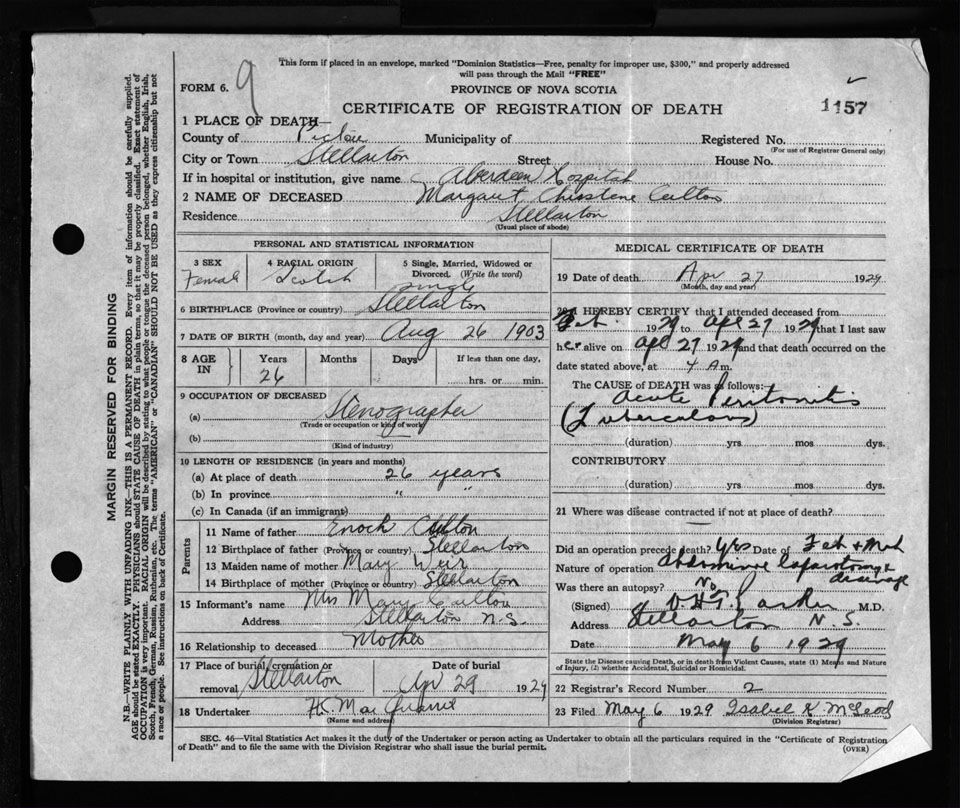 This form if placed in an envelope, marked "Dominion Statistics—Free, penalty for improper use, $300," and properly addressed
will pass through the Mail "FREE"
FORM 6. 9
PROVINCE OF NOVA SCOTIA
CERTIFICATE OF REGISTRATION OF DEATH
1157
1 PLACE OF DEATH—
County of Pictou Municipality of Registered No.
(For use of Registrar General only)
City or Town Stellarton Street House No.
If in hospital or institution, give name Aberdeen Hospital
2 NAME OF DECEASED Margaret Christene Culton
Residence Stellarton
(Usual place of abode)
PERSONAL AND STATISTICAL INFORMATION
3 SEX 4 RACIAL ORIGIN 5 Single, Married, Widowed or
Divorced. (Write the word)
Female Scotch Single
6 BIRTHPLACE (Province or country) Stellarton
7 DATE OF BIRTH (month, day and year) Aug 26 1903
8 AGE IN Years Months Days If less than one day,
26 hrs. or min.
9 OCCUPATION OF DECEASED
(a) Stenographer
(Trade or occupation or kind of work)
(b)
(Kind of industry)
10 LENGTH OF RESIDENCE (in years and months)
(a) At place of death 26 years
(b) In province " "
(c) In Canada (if an immigrant)
Parents
11 Name of father Enoch Culton
12 Birthplace of father (Province or country) Stellarton
13 Maiden name of mother Mary Weir
14 Birthplace of mother (Province or country) Stellarton
15 Informant's name Mrs Mary Culton
Address Stellarton N.S.
16 Relationship to deceased Mother
17 Place of burial, cremation or Date of burial
removal Stellarton Apr 29 1929
18 Undertaker
(Name and address)
MEDICAL CERTIFICATE OF DEATH
19 Date of death Apr 27 1929
(Month, day and year)
20 I HEREBY CERTIFY that I attended deceased from
Feb. 1929 to Apl 27 1929 that I last saw
her alive on Apl 27 1929 and that death occurred on the
date stated above, at 4 A.m.
The CAUSE OF DEATH was as follows:
Acute Peritonitis
(Tuberculous)
(duration) yrs mos dys.
CONTRIBUTORY
(duration) yrs mos dys.
21 Where was disease contracted if not at place of death?
Did an operation precede death? Yes Date of Feb + Mch
Nature of operation Abdominal laparotomy & drainage
Was there an autopsy? No
(Signed) M.D.
Address Stellarton N.S.
Date May 6 1929
State the Disease causing Death, or in death from Violent Causes, state (1) Means and Nature
of Injury, (2) whether Accidental, Suicidal or Homicidal.
22 Registrar's Record Number 2
23 Filed May 6 1929 Isabel K McLeod
(Division Registrar)
SEC. 46—Vital Statistics Act makes it the duty of the Undertaker or person acting as Undertaker to obtain all the particulars required in the "Certificate of Registration
of Death" and to file the same with the Division Registrar who shall issue the burial permit.
(OVER)
MARGIN RESERVED FOR BINDING
N.B.—WRITE PLAINLY WITH UNFADING INK—THIS IS A PERMANENT RECORD. Every item of information should be carefully supplied.
AGE should be stated EXACTLY. PHYSICIANS should STATE CAUSE OF DEATH in plain terms, so that it may be properly classified. Exact statement of
OCCUPATION is very important. RACIAL ORIGIN will be described by stating to what people or tongue the deceased person belonged, whether English, Irish,
Scotch, French, German, Russian, Ruthenian, etc. The terms "AMERICAN" or "CANADIAN" SHOULD NOT BE USED as they express citizenship but not
a race or people. See instructions on back of Certificate.